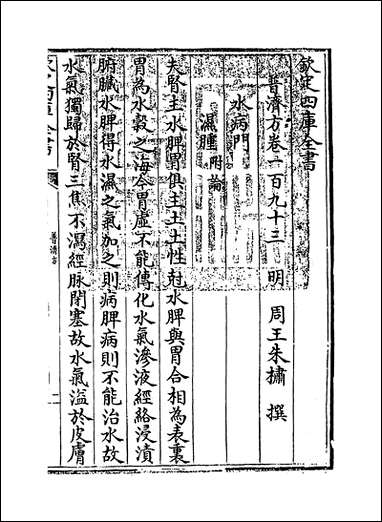 欽定四庫全書
普濟方卷一百九十三　明　周王朱橚　撰
水病門
濕腫附論
夫腎主水脾胃俱主土土性尅水脾與胃合相為表裏
胃為水穀之海今胃虛不能傳化水氣滲液經絡浸漬
腑臟水脾得水濕之氣加之則病脾病則不能治水故
水氣獨歸於腎三焦不瀉經脉閉塞故水氣溢於皮膚
普濟方